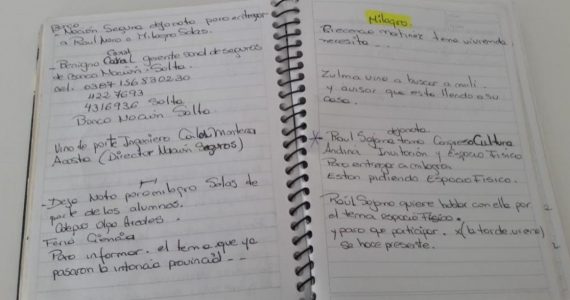 Banco
- Nación Seguros dejo nota para entregar
a Raul Noro o Milagro Salas.
Canal
- Benigno Cabral gerente zonal de seguros
de Banco Nación - Salta
cel. 0387 156830230
4227693
4316936 Salta
Banco Nación Salta
Vino de parte Ingeniero Carlos Montena
Acosta (Director Nación Seguros)
- Dejo Nota para milagro Salas de
parte de los alumnos.
Colegio Olga Arédes.
Feria Ciencia
Para informar el tema que ya
pasaron la instancia provincial - -
Milagro
martinez tema vivienda
necesita ...
Zulma vino a buscar a meli
y avisar que este llendo a su
casa.
dejo nota
* Raul Sajama tema Congreso Cultura
Andina Invitación y Espacio Físico
Para entregar a milagro
Estan pidiendo Espacio Fisico.
Raúl Sajama quiere hablar con ella por
el tema espacio Físico.
y para que participar. x (la tarde viene)
se hace presente.
2
2